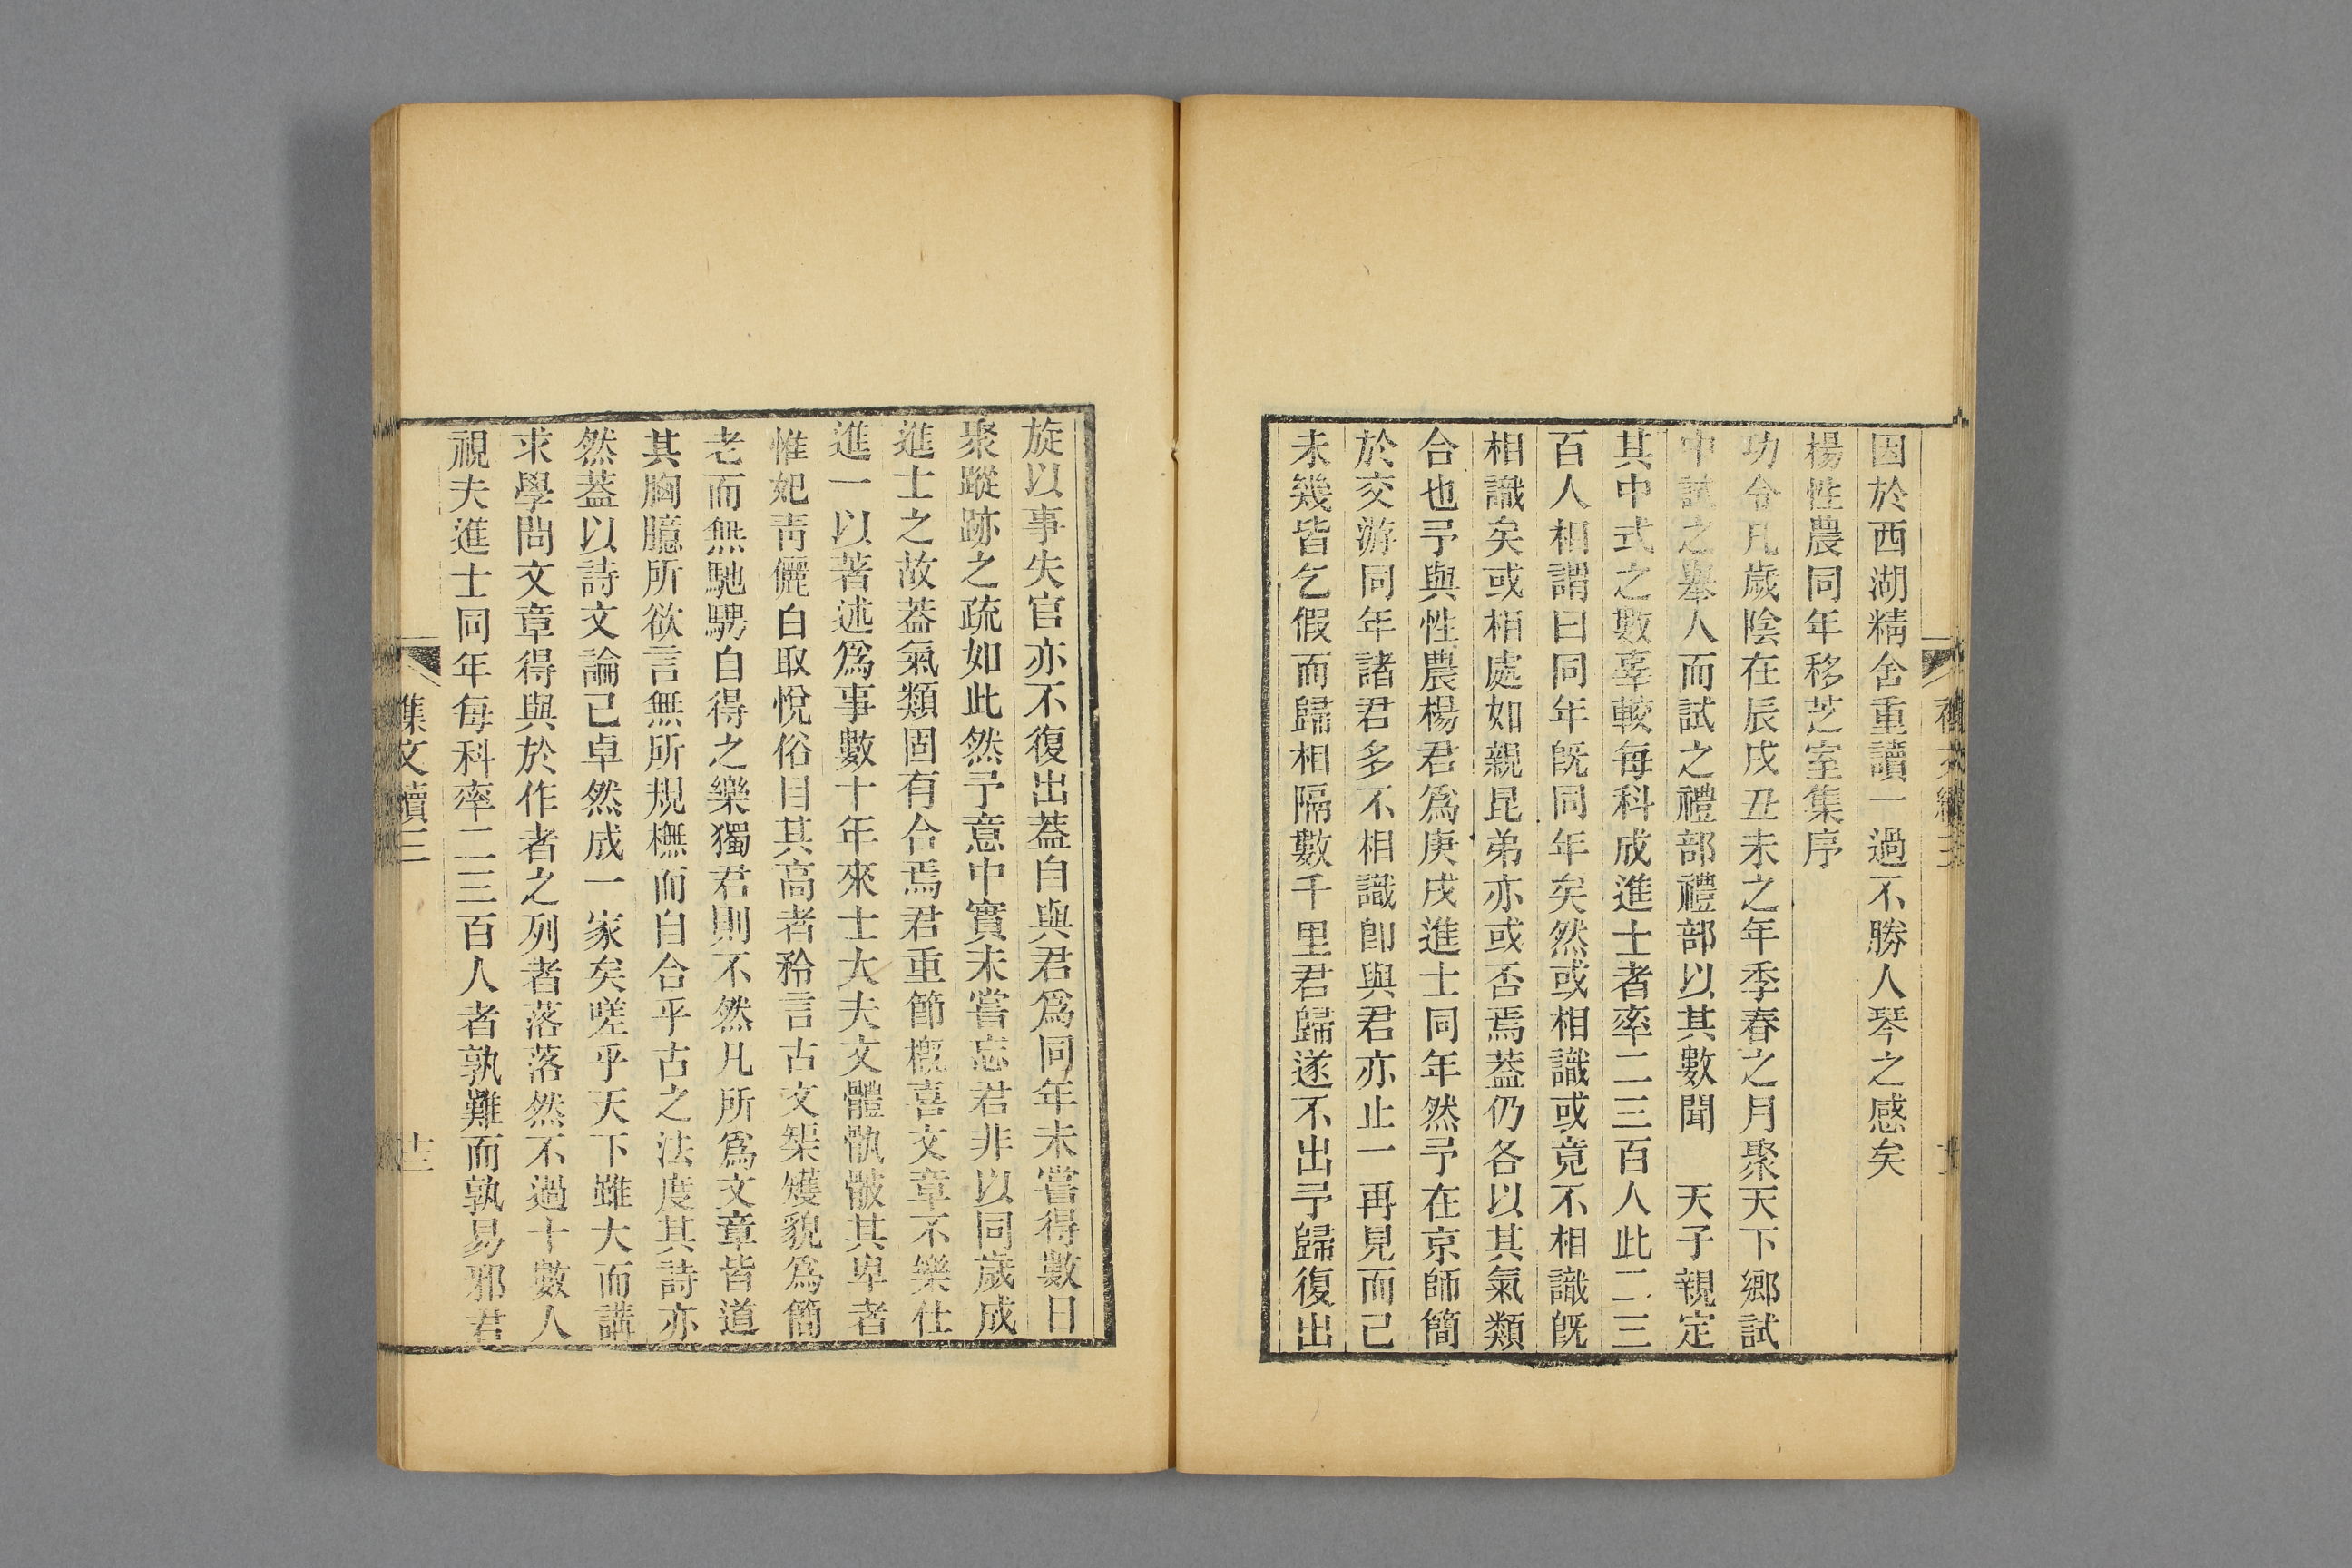 因於西湖精舍重讀一過不勝人琴之感矣
楊性農同年移芝室集序
功令凡歲陰在辰戌丑未之年季春之月聚天下鄉試
中試之舉人而試之禮部禮部以其數聞　天子親定
其中式之數辜較每科成進士者率二三百人此二三
百人相謂曰同年旣同年矣然或相識或竟不相識旣
相識矣或相處如親昆弟亦或否焉葢仍各以其氣類
合也予與性農楊君爲庚戌進士同年然予在京師簡
於交游同年諸君多不相識卽與君亦止一再見而已
未幾皆乞假而歸相隔數千里君歸遂不出予歸復出
旋以事失官亦不復出葢自與君爲同年未嘗得數日
聚蹤跡之疏如此然予意中實未嘗忘君非以同歲成
進士之故葢氣類固有合焉君重節槪喜文章不樂仕
進一以著述爲事數十年來士大夫文體骩骳其卑者
惟妃靑儷白取悅俗目其高者矜言古文榘矱貌爲簡
老而無馳騁自得之樂獨君則不然凡所爲文章皆道
其胸臆所欲言無所規橅而自合乎古之法度其詩亦
然葢以詩文論已卓然成一家矣嗟乎天下雖大而講
求學問文章得與於作者之列者落落然不過十數人
視夫進士同年每科率二三百人者孰難而孰易邪君
集文續三